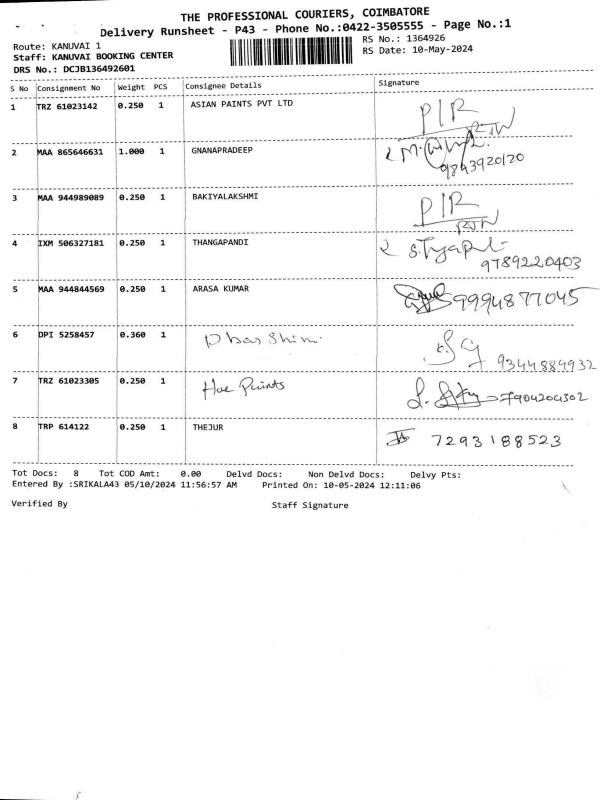 THE PROFESSIONAL COURIERS, COIMBATORE
Delivery Runsheet - P43 - Phone No.:0422-3505555 - Page No.:1
Route: KANUVAI 1 RS No.: 1364926
Staff: KANUVAI BOOKING CENTER RS Date: 10-May-2024
DRS No.: DCJB136492601
S No Consignment No Weight PCS Consignee Details Signature
1 TRZ 61023142 0.250 1 ASIAN PAINTS PVT LTD P/R
2 MAA 865646631 1.000 1 GNANAPRADEEP
9843920120
3 MAA 944989089 0.250 1 BAKIYALAKSHMI P/R
4 IXM 506327181 0.250 1 THANGAPANDI
9789220403
5 MAA 944844569 0.250 1 ARASA KUMAR 9994877045
6 DPI 5258457 0.360 1
9344884932
7 TRZ 61023305 0.250 1 Hue Paints 7904204302
8 TRP 614122 0.250 1 THEJUR 7293188523
Tot Docs: 8 Tot COD Amt: 0.00 Delvd Docs: Non Delvd Docs: Delvy Pts:
Entered By :SRIKALA43 05/10/2024 11:56:57 AM Printed On: 10-05-2024 12:11:06
Verified By Staff Signature